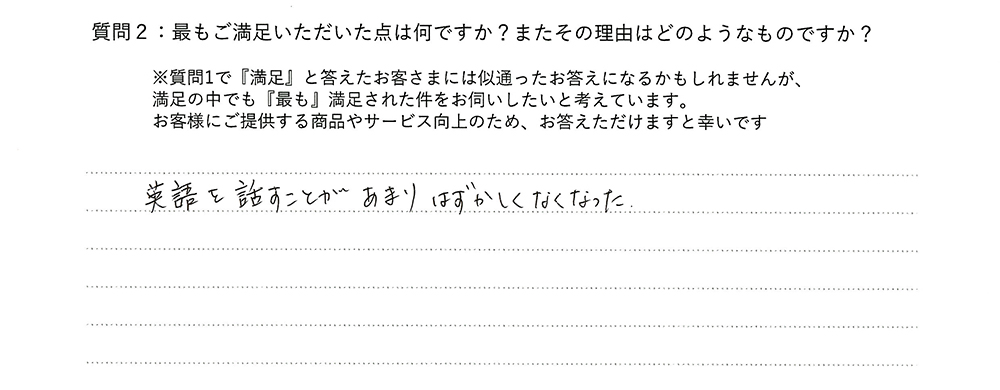 質問２：最もご満足いただいた点は何ですか？またその理由はどのようなものですか？
※質問1で『満足』と答えたお客さまには似通ったお答えになるかもしれませんが、
満足の中でも『最も』満足された件をお伺いしたいと考えています。
お客様にご提供する商品やサービス向上のため、お答えただけますと幸いです
英語を話すことがあまりはずかしくなくなった.